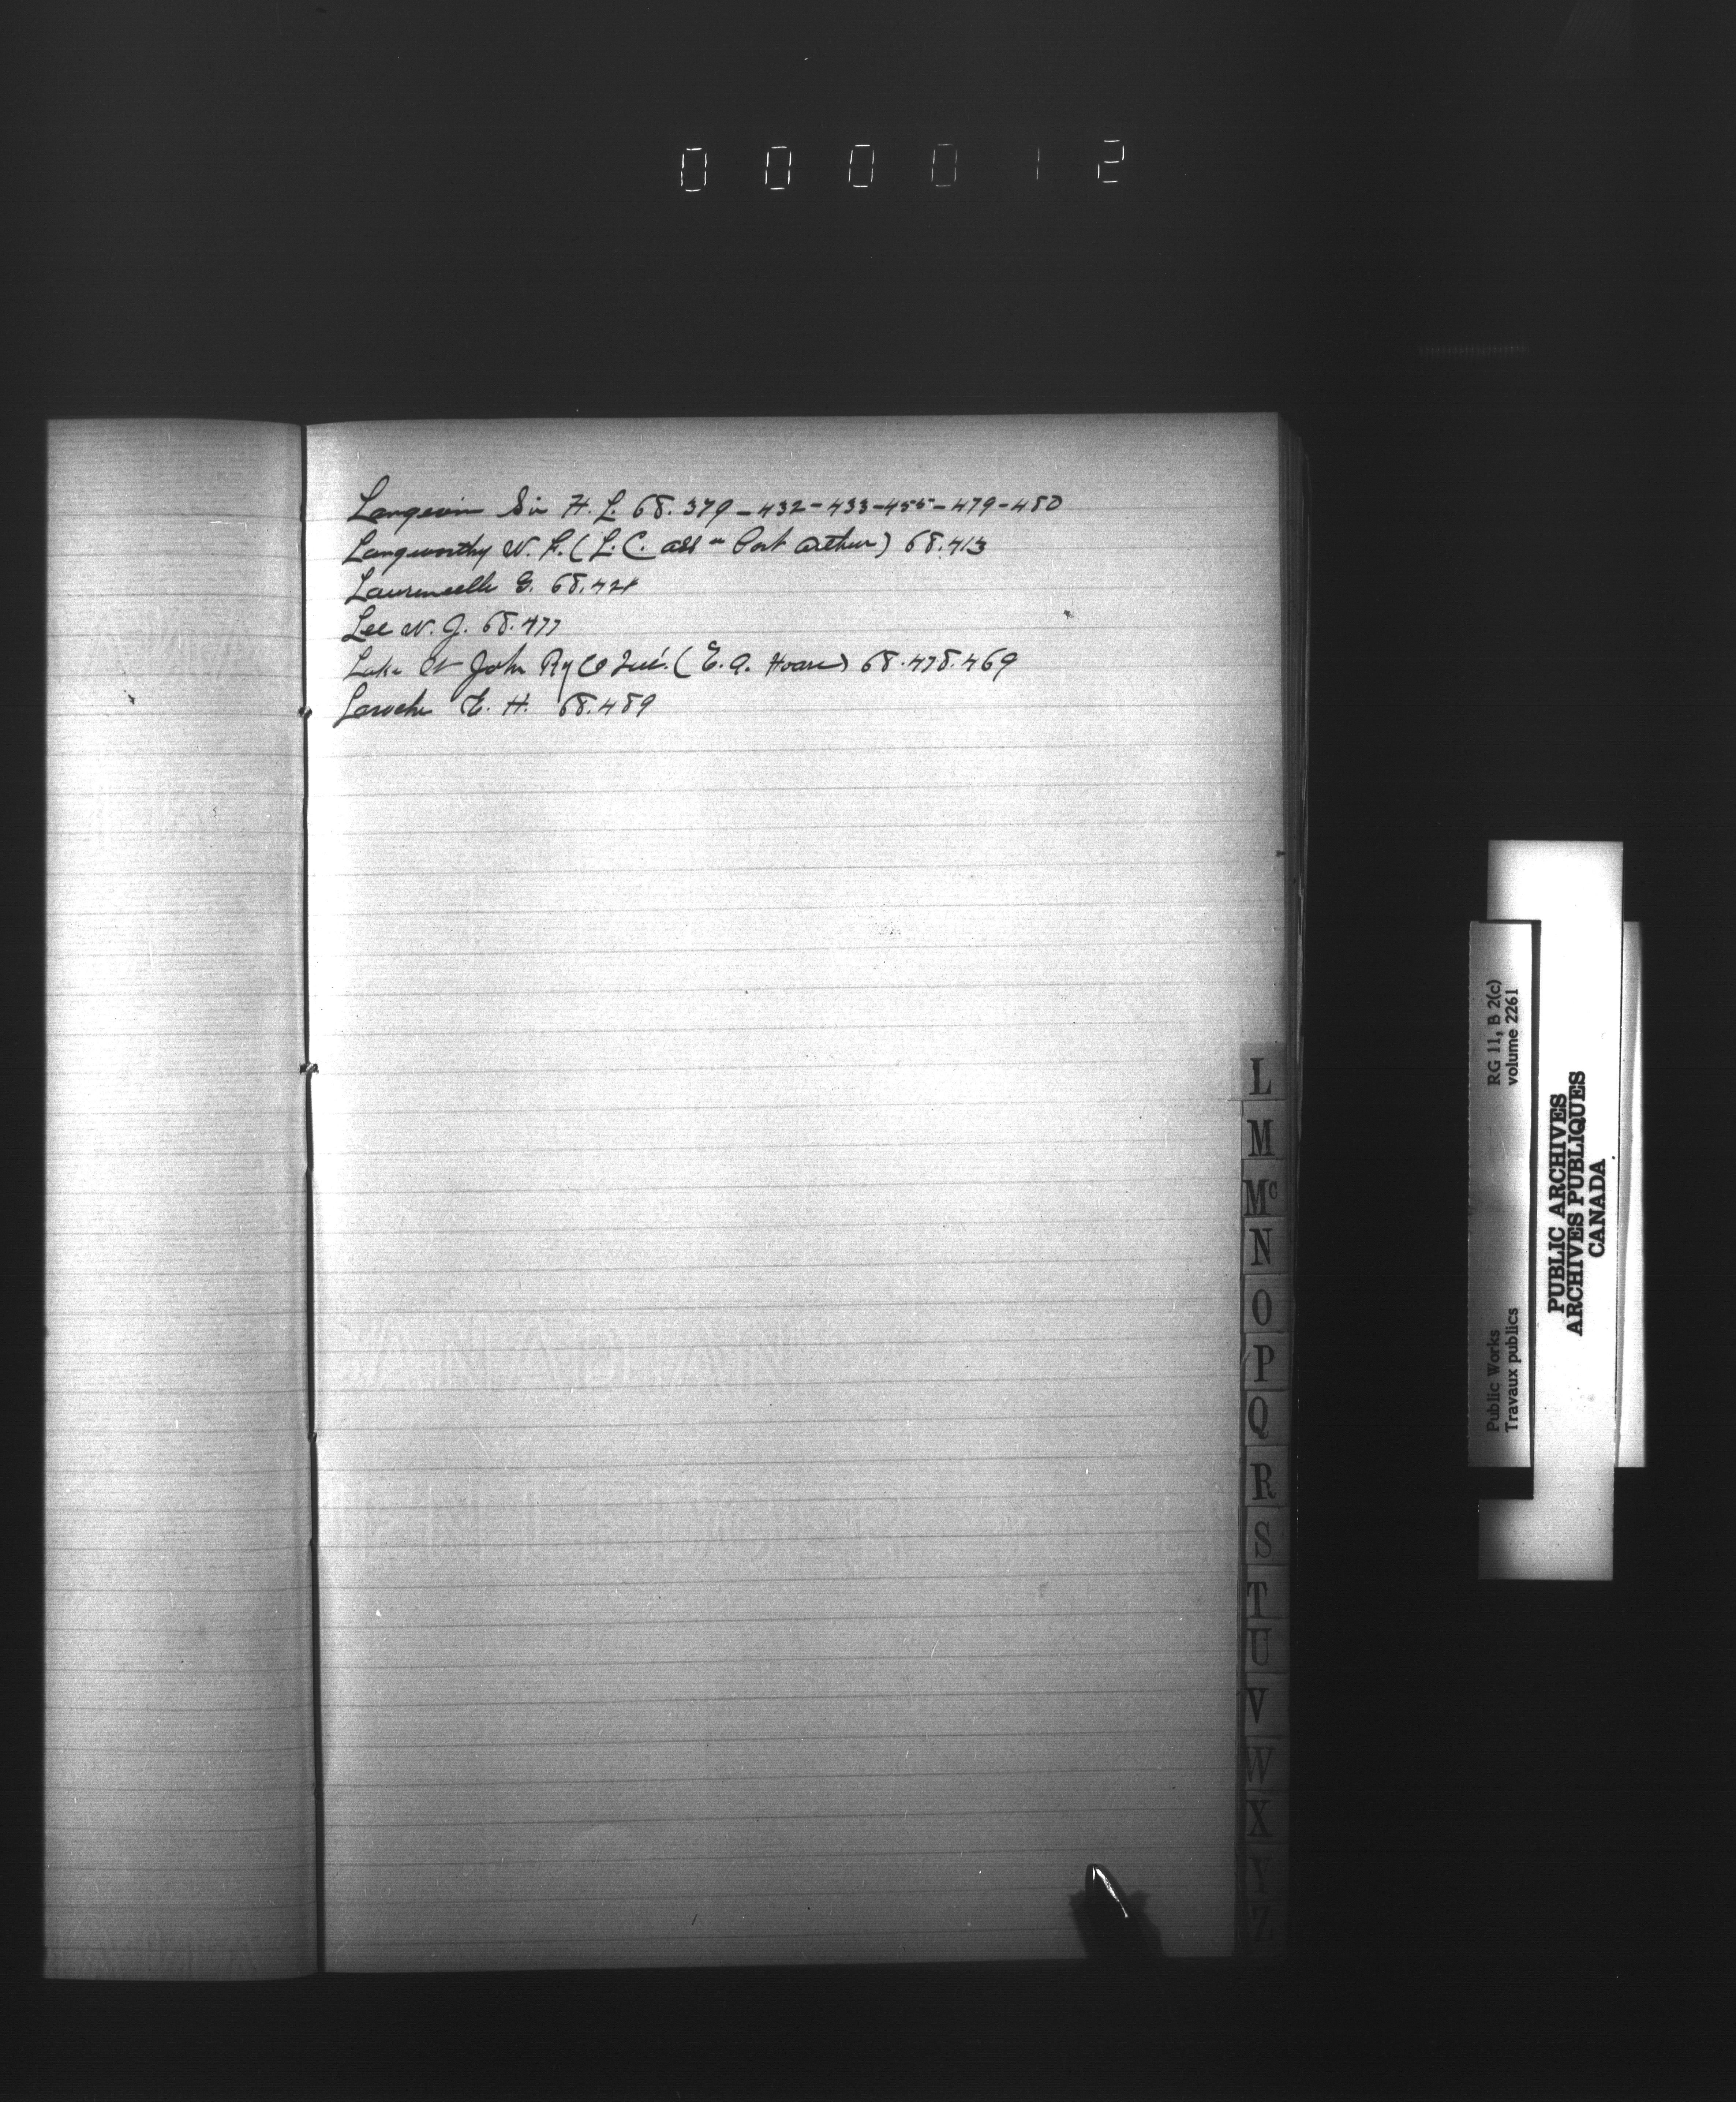 000012
Langevin Sir H. L. 68. 379 - 432 - 433 - 455 - 479 - 480
Langworthy W. F. (L. C. assn Port Arthur) 68.413
Laurencelle G. 68.424
Lee W. J. 68.477
Lake St John Ry Co Qué. (E. A. Hoare) 68.478.469
Laroche E. H. 68.489
L
M
Mc
N
O
P
Q
R
S
T
U
V
W
X
Y
Z
RG 11, B 2(c)
volume 2261
Public Works
Travaux publics
PUBLIC ARCHIVES
ARCHIVES PUBLIQUES
CANADA